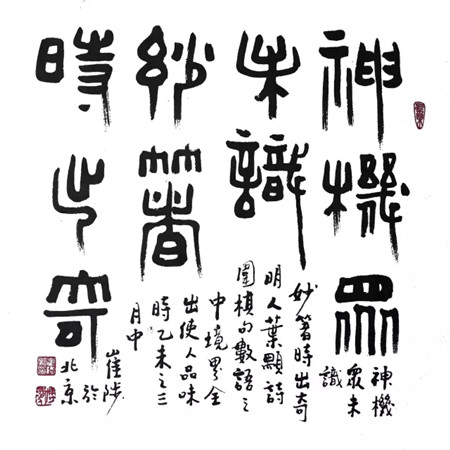 神機眾
未識
紗箸
時出奇
神機
眾未
識
妙箸時出奇
明人葉顒詩
圍棋句數語之
中境界全
出使人品味
時乙未之三
月中
崔陟於
北京